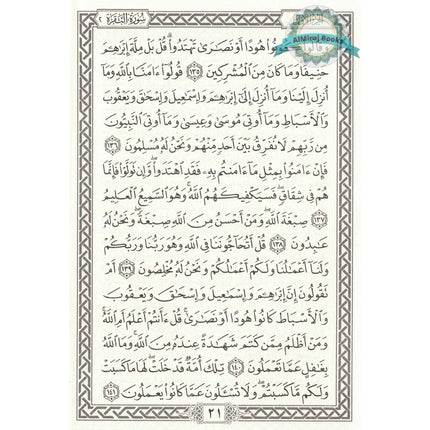 سُورَةُ البَقَرَةِ ٢
AlMiraj Books
وَقَالُوا۟ كُونُوا۟ هُودًا أَوْ نَصَـٰرَىٰ تَهْتَدُوا۟ ۗ قُلْ بَلْ مِلَّةَ إِبْرَٰهِـۧمَ
حَنِيفًا وَمَا كَانَ مِنَ ٱلْمُشْرِكِينَ ١٣٥ قُولُوٓا۟ ءَامَنَّا بِٱللَّهِ وَمَآ
أُنزِلَ إِلَيْنَا وَمَآ أُنزِلَ إِلَىٰٓ إِبْرَٰهِـۧمَ وَإِسْمَـٰعِيلَ وَإِسْحَـٰقَ وَيَعْقُوبَ
وَٱلْأَسْبَاطِ وَمَآ أُوتِىَ مُوسَىٰ وَعِيسَىٰ وَمَآ أُوتِىَ ٱلنَّبِيُّونَ
مِن رَّبِّهِمْ لَا نُفَرِّقُ بَيْنَ أَحَدٍ مِّنْهُمْ وَنَحْنُ لَهُۥ مُسْلِمُونَ ١٣٦
فَإِنْ ءَامَنُوا۟ بِمِثْلِ مَآ ءَامَنتُم بِهِۦ فَقَدِ ٱهْتَدَوا۟ ۖ وَّإِن تَوَلَّوْا۟ فَإِنَّمَا
هُمْ فِى شِقَاقٍ ۖ فَسَيَكْفِيكَهُمُ ٱللَّهُ ۚ وَهُوَ ٱلسَّمِيعُ ٱلْعَلِيمُ
١٣٧ صِبْغَةَ ٱللَّهِ ۖ وَمَنْ أَحْسَنُ مِنَ ٱللَّهِ صِبْغَةً ۖ وَنَحْنُ لَهُۥ
عَـٰبِدُونَ ١٣٨ قُلْ أَتُحَآجُّونَنَا فِى ٱللَّهِ وَهُوَ رَبُّنَا وَرَبُّكُمْ
وَلَنَآ أَعْمَـٰلُنَا وَلَكُمْ أَعْمَـٰلُكُمْ وَنَحْنُ لَهُۥ مُخْلِصُونَ ١٣٩ أَمْ
تَقُولُونَ إِنَّ إِبْرَٰهِـۧمَ وَإِسْمَـٰعِيلَ وَإِسْحَـٰقَ وَيَعْقُوبَ
وَٱلْأَسْبَاطَ كَانُوا۟ هُودًا أَوْ نَصَـٰرَىٰ ۗ قُلْ ءَأَنتُمْ أَعْلَمُ أَمِ ٱللَّهُ ۗ
وَمَنْ أَظْلَمُ مِمَّن كَتَمَ شَهَـٰدَةً عِندَهُۥ مِنَ ٱللَّهِ ۗ وَمَا ٱللَّهُ
بِغَـٰفِلٍ عَمَّا تَعْمَلُونَ ١٤٠ تِلْكَ أُمَّةٌ قَدْ خَلَتْ ۖ لَهَا مَا كَسَبَتْ
وَلَكُم مَّا كَسَبْتُمْ ۖ وَلَا تُسْـَٔلُونَ عَمَّا كَانُوا۟ يَعْمَلُونَ ١٤١
٢١